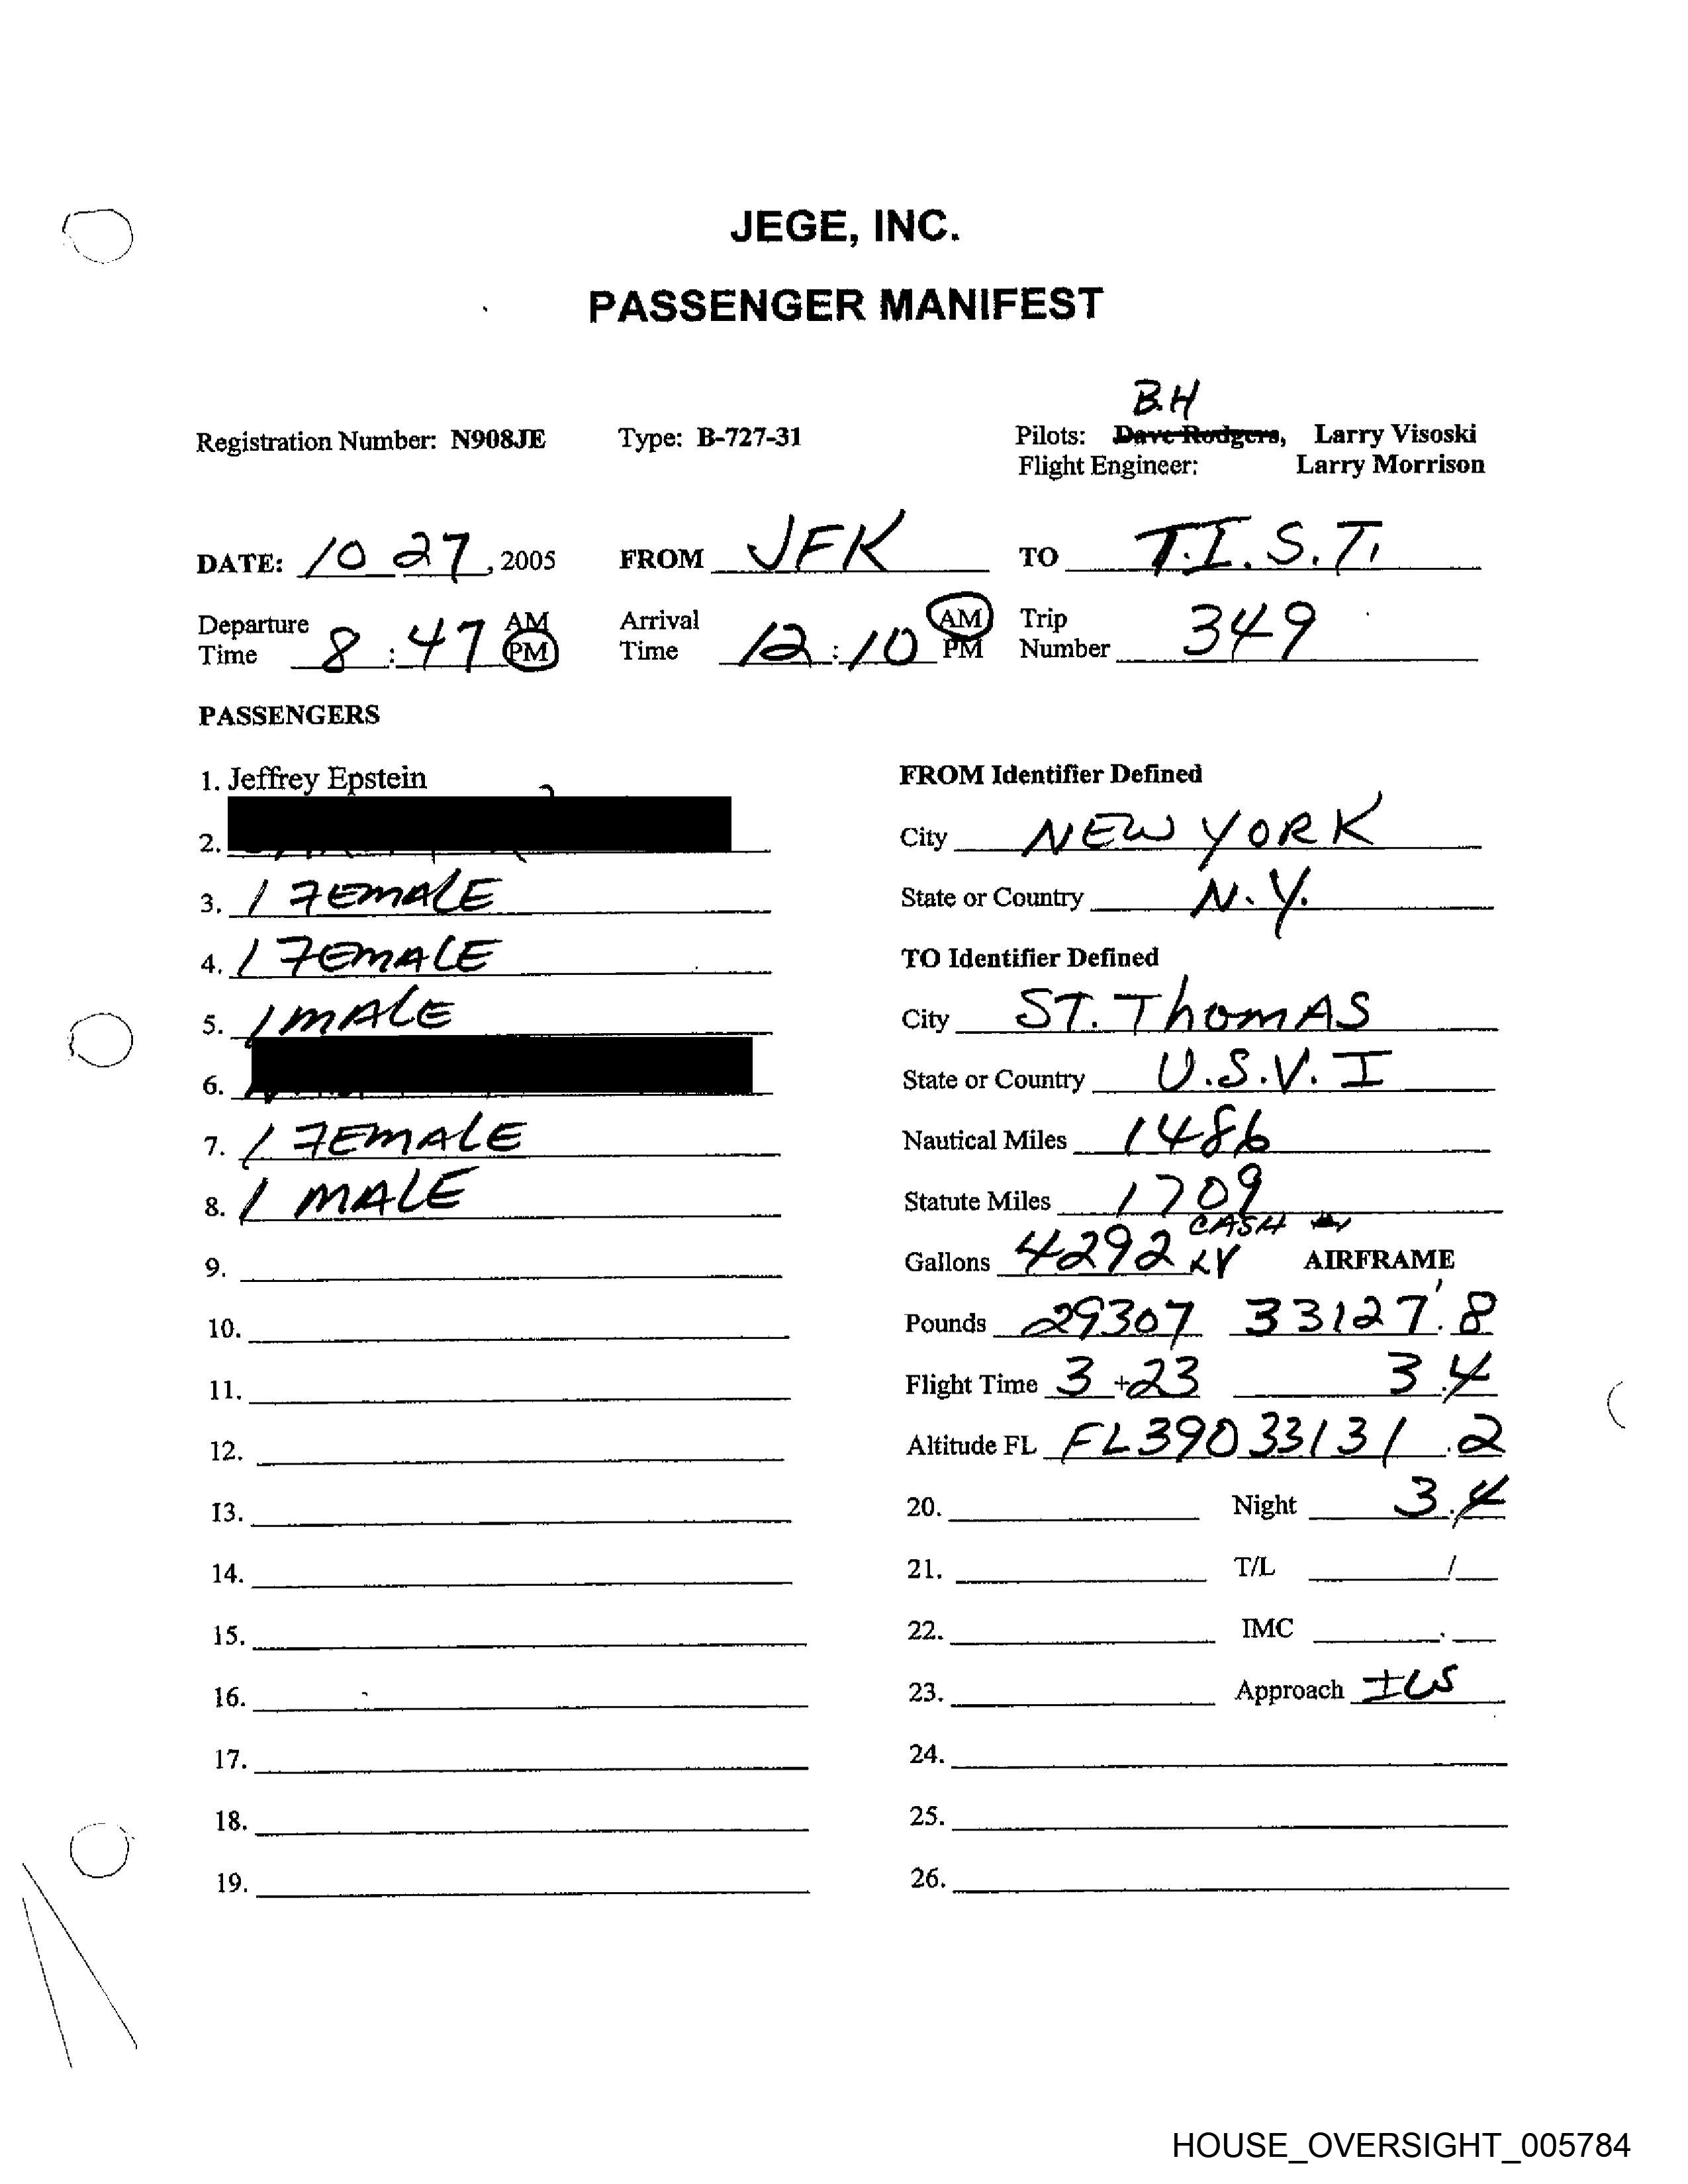 JEGE, INC.
PASSENGER MANIFEST
B.H
Registration Number: N908JE Type: B-727-31 Pilots: Dave Rodgers, Larry Visoski
Flight Engineer: Larry Morrison
DATE: 10 27, 2005 FROM JFK TO T.I.S.T.
Departure Time 8:47 AM PM Arrival Time 12:10 AM PM Trip Number 349
PASSENGERS
1. Jeffrey Epstein
2.
3. 1 FEMALE
4. 1 FEMALE
5. 1 MALE
6.
7. 1 FEMALE
8. 1 MALE
9.
10.
11.
12.
13.
14.
15.
16.
17.
18.
19.
FROM Identifier Defined
City NEW YORK
State or Country N.Y.
TO Identifier Defined
City ST. ThomAS
State or Country U.S.V.I
Nautical Miles 1486
Statute Miles 1709
CASH
Gallons 4292 LV AIRFRAME
Pounds 29307 33127.8
Flight Time 3+23 3.4
Altitude FL FL390 33131.2
20. Night 3.4
21. T/L /
22. IMC .
23. Approach ILS
24.
25.
26.
HOUSE_OVERSIGHT_005784